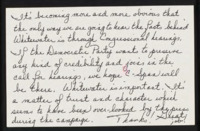 It's becoming more and more obvious that
the only way we are going to hear the facts behind
Whitewater is through Congressional hearings.
If the Democratic Party wants to preserve
any kind of credibility and goes in the
call for hearings, we hope C-Span will
be there. Whitewater is important. It's a
matter of trust and character which
seems to have been overlooked by the press
during the campaign. Thanks